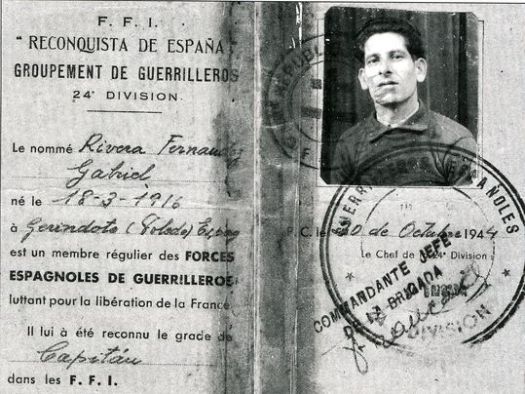 F. F. I.
"RECONQUISTA DE ESPAÑA"
GROUPEMENT DE GUERRILLEROS
24e DIVISION
Le nommé Rivera Fernandez
Gabriel
né le 18-3-1916
à Gerindote (Toledo) Espag
est un membre régulier des FORCES
ESPAGNOLES DE GUERRILLEROS
luttant pour la libération de la France.
Il lui à été reconnu le grade de
Capitán
dans les F. F. I.
P. C. le 20 de Octubre 1944
Le Chef de la 24e Division
GUERRILLEROS ESPAÑOLES
COMMANDANTE JEFE
DE LA BRIGADA
DIVISION